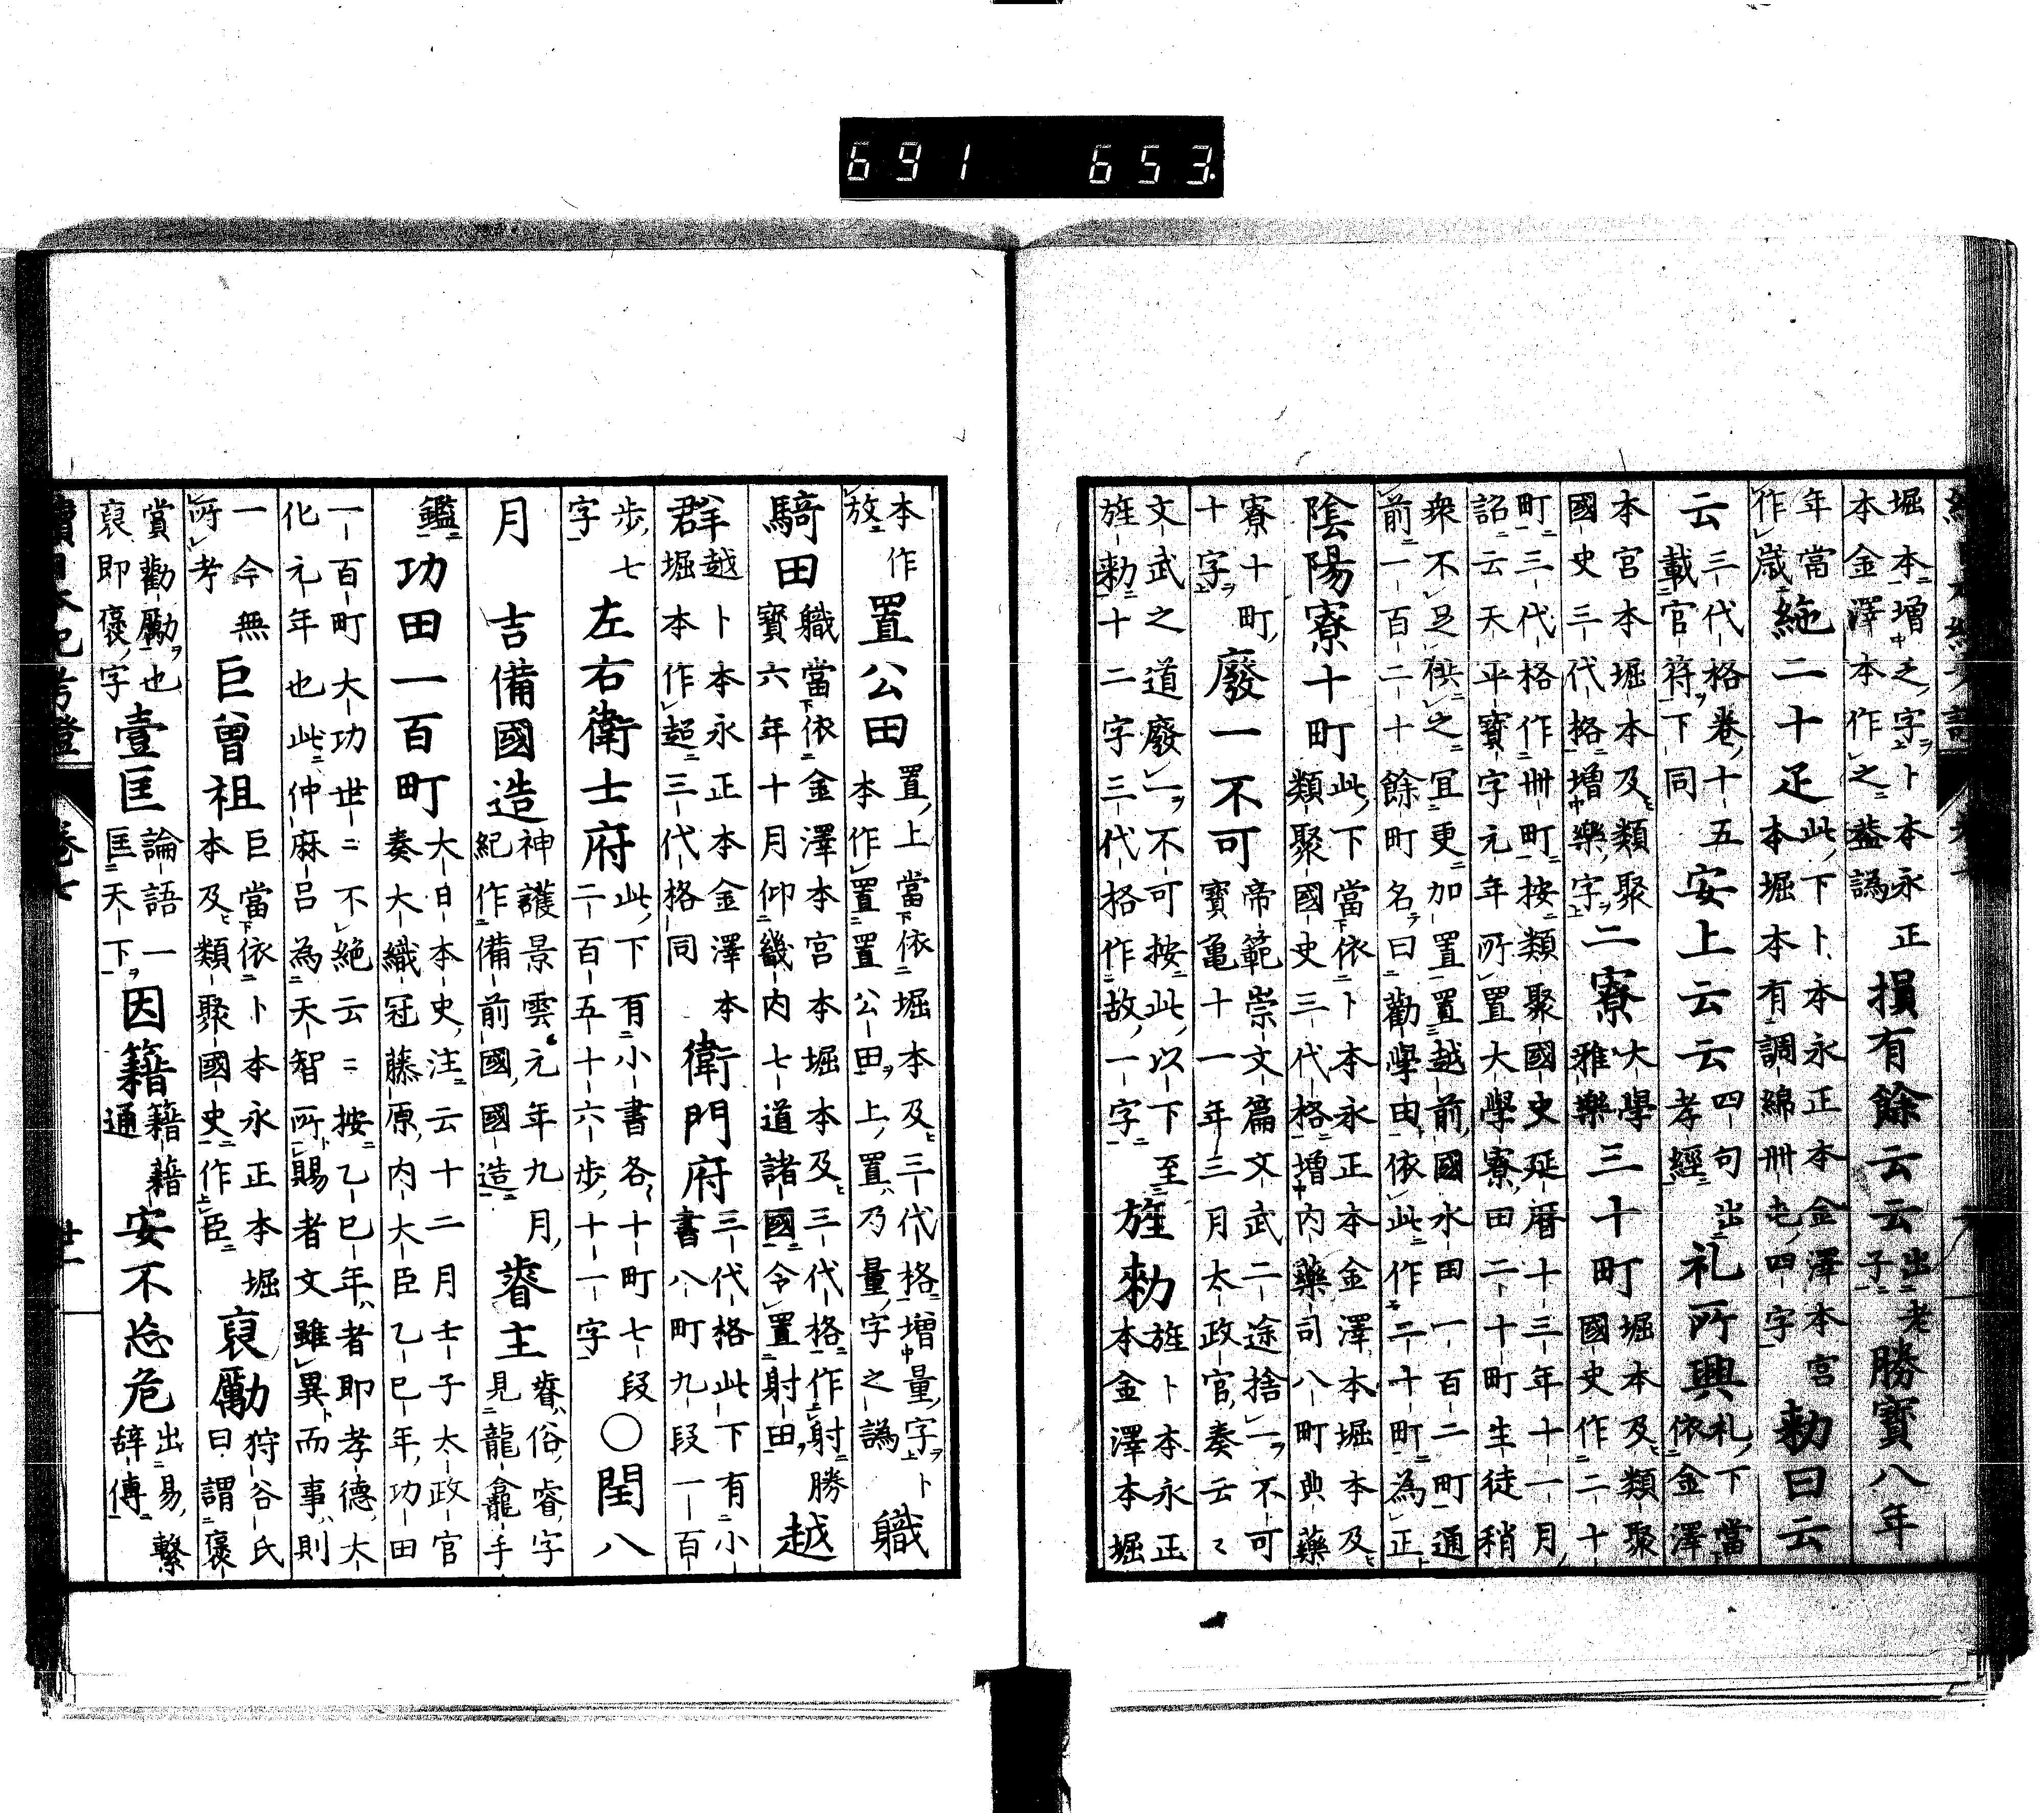 續日本紀考證
堀本増乏字卜本永正本金澤本作之盖譌損有餘云云出老子勝寶八年
年當作歳絁二十疋此下卜本永正本金澤本宮本堀本有調綿卌屯四字勅曰云
云三代格巻十五載官符下同安上云云四句出孝經礼所興礼下當依金澤
本宮本堀本及類聚國史三代格増樂字二寮大學雅樂三十町堀本及類聚國史作二十
町三代格作卌町按類聚國史延暦十三年十一月詔云天平寶字元年所置大學寮田二十町生徒稍
衆不足供之宜更加置置越前國水田一百二町通前一百二十餘町名曰勸學田依此作二十町為正
陰陽寮十町此下當依卜本永正本金澤本堀本及類聚國史三代格増内藥司八町典藥
寮十町十字廢一不可帝範崇文篇文武二途捨一不可寶亀十一年三月太政官奏云々
文武之道廢一不可按此以下至旌勅十二字三代格作故一字旌勅旌卜本永正本金澤本堀
本作放置公田置上當依堀本及三代格増量字卜本作置置公田上置乃量字之譌職
騎田職當依金澤本宮本堀本及三代格作射勝寶六年十月仰畿内七道諸國令置射田越
群越卜本永正本金澤本堀本作超三代格同衛門府三代格此下有小書八町九段一百
歩七字左右衛士府此下有小書各十町七段二百五十六歩十一字○閏八
月吉備國造神護景雲元年九月紀作備前國國造主俗睿字見龍龕手
鑑功田一百町大日本史注云十二月壬子太政官奏大織冠藤原内大臣乙巳年功田
一百町大功世二不絶云二按乙巳年者即孝德大化元年也此仲麻呂為天智所賜者文雖異而事則
一今無所考巨曾祖巨當依卜本永正本堀本及類聚國史作臣裒勵狩谷氏曰謂褒
賞勸勵也裒即褒字壹匡論語一匡天下因籍籍藉通安不忘危出易繫辞傳
續日本紀考證 卷七 廿一